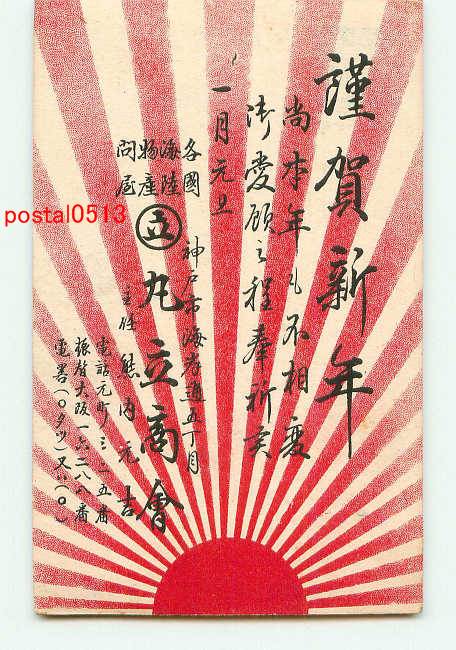 謹賀新年
尚本年も不相変
御愛顧之程奉祈候
一月元旦
各國
海陸
物産
問屋
神戸市海岸通五丁目
立 丸立商會
主任 熊内元吉
電話元町三一五番
振替大阪一六二八八番
電畧(〇タツ)又ハ(〇〇)
postal0513